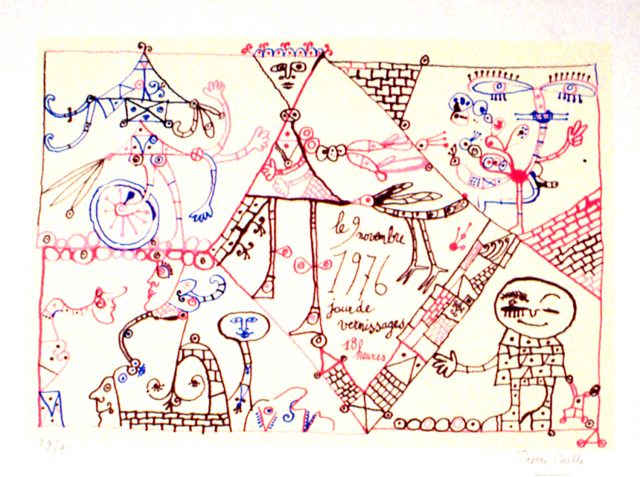 le 9
novembre
1976
jour de
vernissages
18
heures